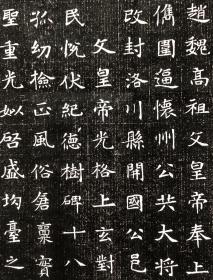 趙魏高祖父皇帝奉上
儁圍逼懷州公共大將
改封洛川縣開國公邑
父皇帝光格上玄對
民悅伏紀德樹碑十八
孤幼檢正風俗倉廩實
聖重光如啓盛均臺之